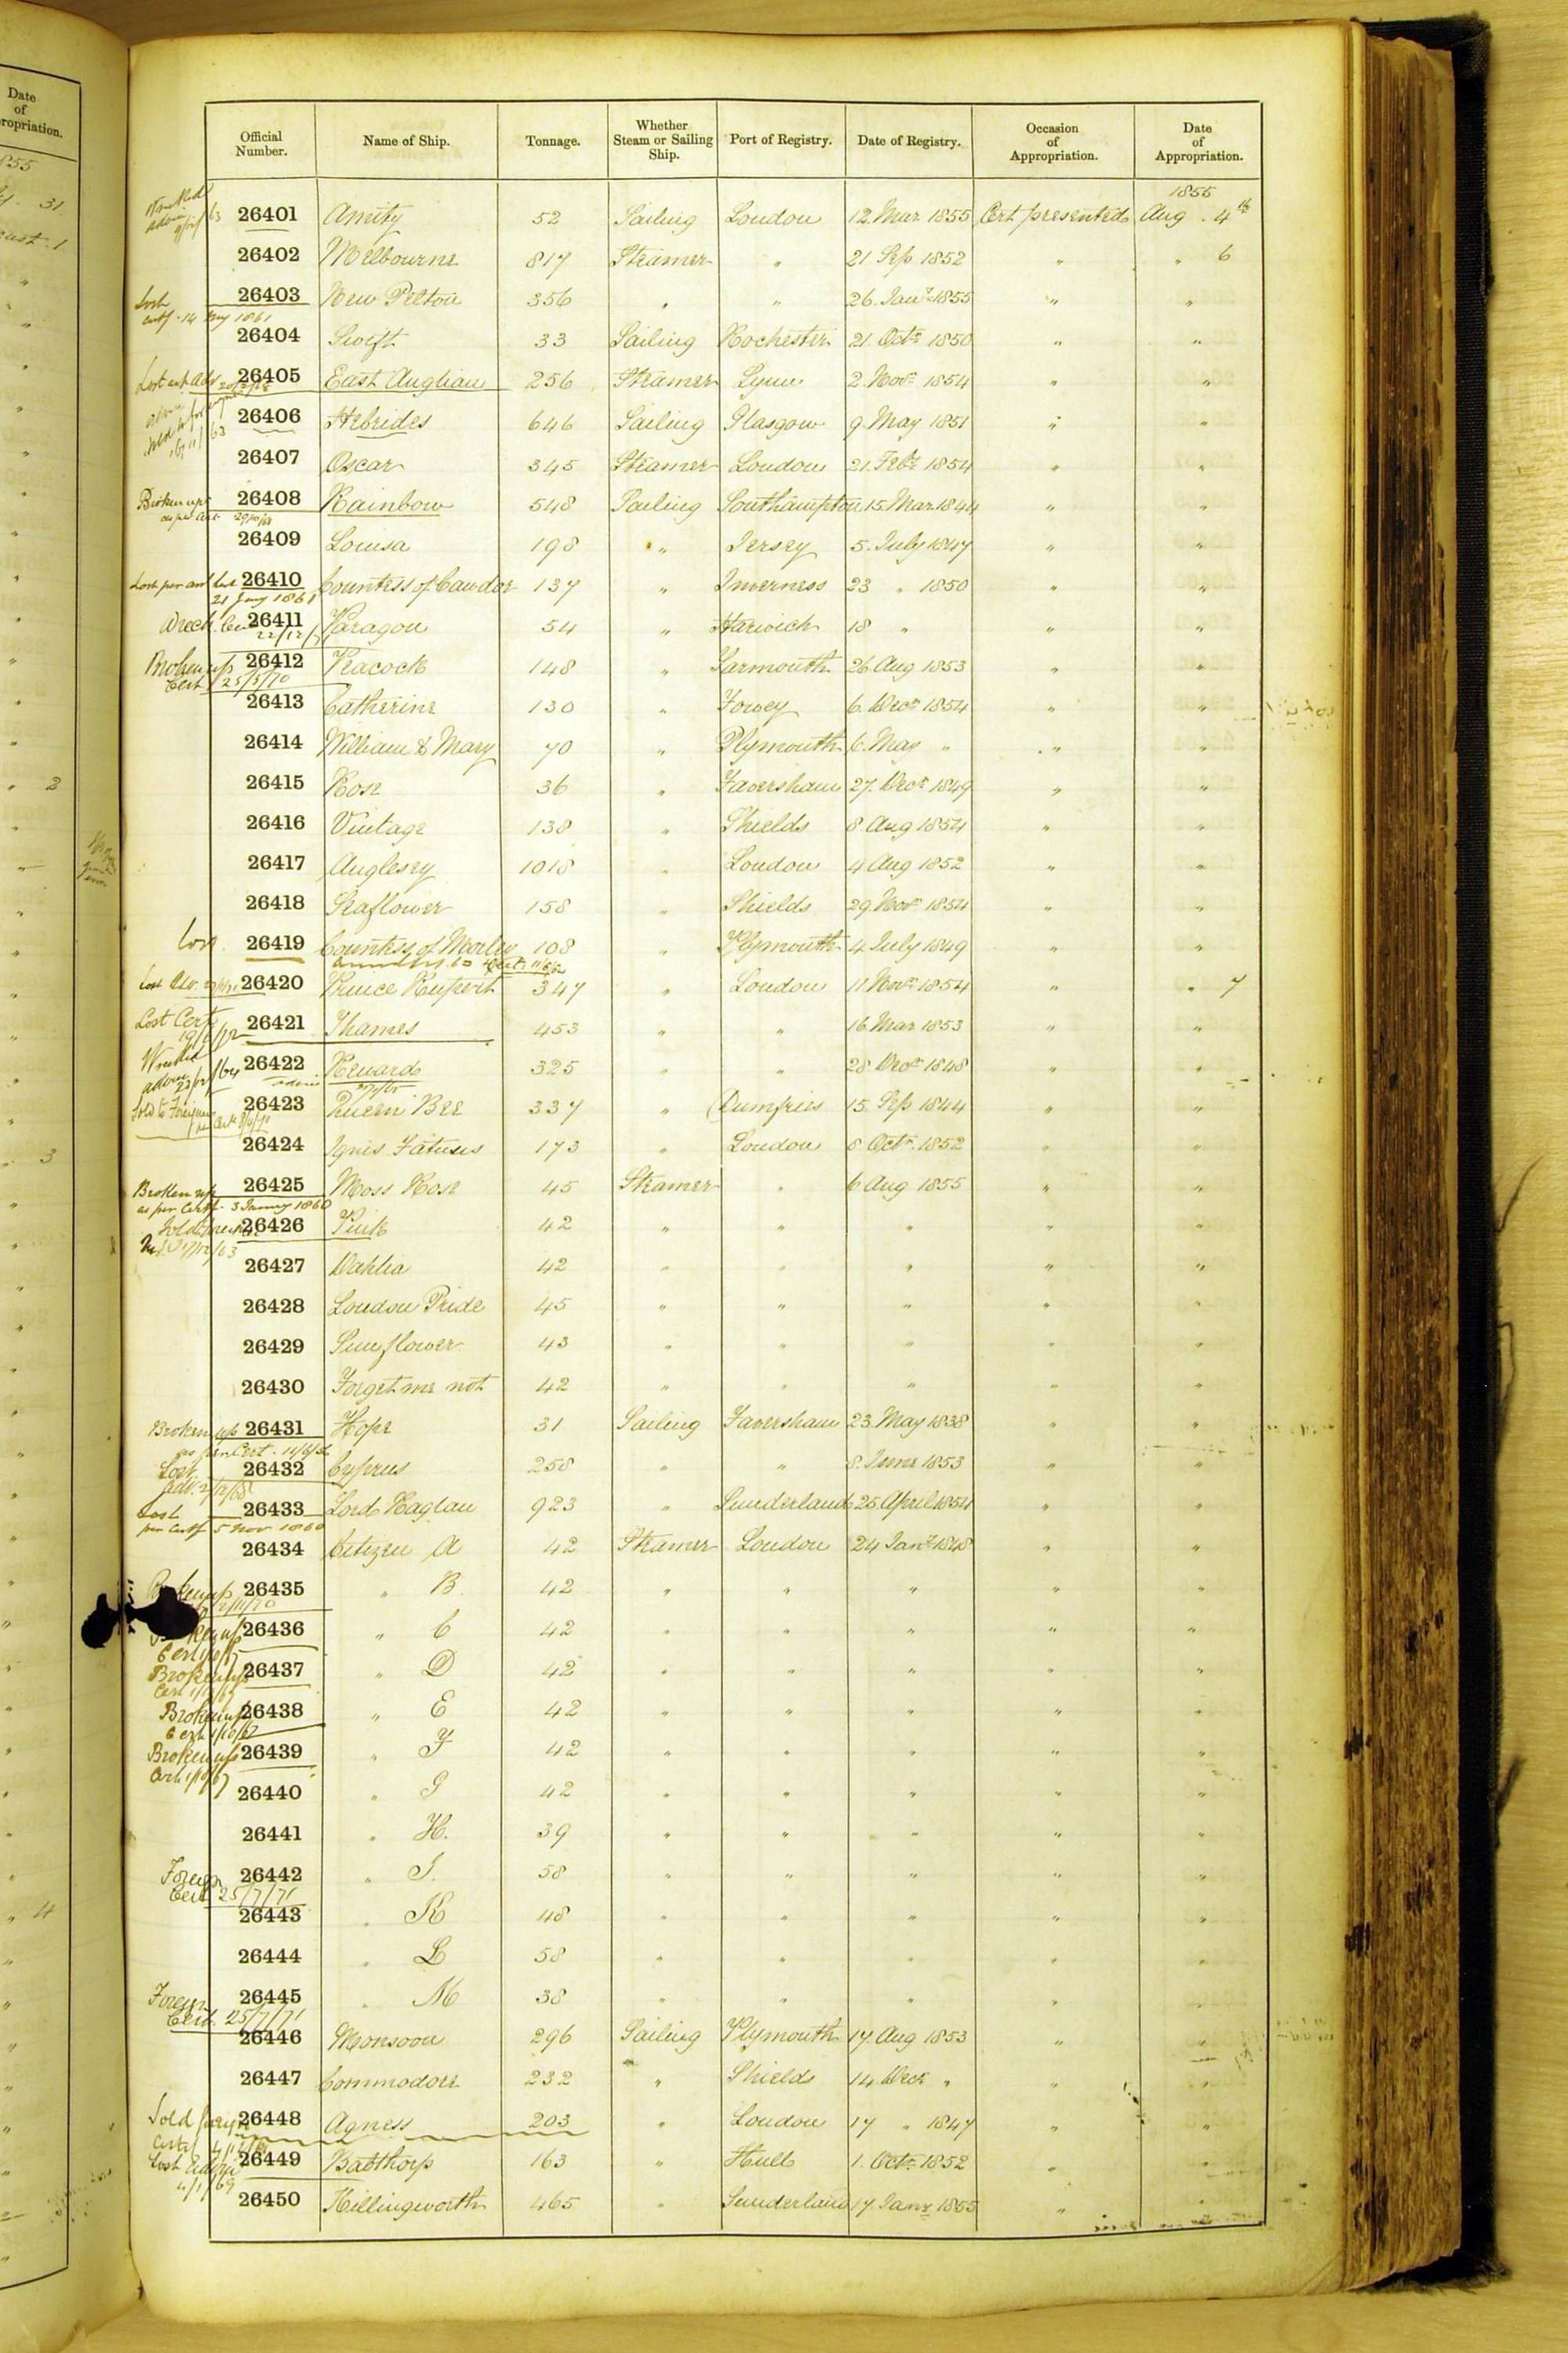 Date
of
ropriation.
855
31
ust. 1
2
3
4
Official Number. Name of Ship. Tonnage. Whether Steam or Sailing Ship. Port of Registry. Date of Registry. Occasion of Appropriation. Date of Appropriation.
1855
26401 Amity 52 Sailing London 12. Mar 1855 Cert presented Aug. 4th
26402 Melbourne 817 Steamer " 21 Sep 1852 " " 6
26403 New Pelton 356 " " 26. Jany 1855 " "
Lost
Certf. 14 1861
26404 Swift 33 Sailing Rochester 21. Octr 1850 " "
26405 East Anglian 256 Steamer Lynn 2. Novr 1854 " "
26406 Hebrides 646 Sailing Glasgow 9. May 1851 " "
26407 Oscar 345 Steamer London 21. Feby 1854 " "
Broken up 26408 Rainbow 548 Sailing Southampton 15. Mar 1844 " "
as per Cert
26409 Louisa 198 " Jersey 5. July 1847 " "
Lost per 26410 Countess of Cawdor 137 " Inverness 23 " 1850 " "
21 1861
Wreck. 26411 Paragon 54 " Harwich 18 " " "
22/12/
Broken up 26412 Peacock 148 " Yarmouth 26. Aug 1853 " "
Cert 25/5/70
26413 Catherine 130 " Fowey 6. Decr 1854 " "
26414 William & Mary 70 " Plymouth 6. May " " "
26415 Rose 36 " Faversham 27. Decr 1849 " "
26416 Vintage 138 " Shields 8 Aug 1854 " "
26417 Anglesey 1018 " London 4 Aug 1852 " "
26418 Seaflower 158 " Shields 29. Novr 1854 " "
Lost 26419 Countess of Morley 108 " Plymouth 4 July 1849 " "
26420 Prince Rupert 347 " London 11. Novr 1854 " " 7
Lost Cert 26421 Thames 453 " " 16. Mar 1853 " "
Wrecked 26422 Reward 325 " " 28 Decr 1848 " "
Sold to Foreigners 26423 Queen Bee 337 " Dumfries 15. Sep 1844 " "
26424 Ignis Fatuus 173 " London 8 Octr. 1852 " "
Broken up 26425 Moss Rose 45 Steamer " 6 Aug 1855 " "
as per Certf. 3 1860
26426 Pink 42 " " " " "
26427 Dahlia 42 " " " " "
26428 London Pride 45 " " " " "
26429 Sunflower 43 " " " " "
26430 Forget me not 42 " " " " "
Broken up 26431 Hope 31 Sailing Faversham 23. May 1838 " "
as per Cert.
Lost 26432 Cyprus 258 " " 8. June 1853 " "
Lost 26433 Lord Raglan 923 " Sunderland 25. April 1854 " "
per Certf 5 Nov 1860
26434 Citizen A 42 Steamer London 24 Jany 1848 " "
26435 " B. 42 " " " " "
26436 " C 42 " " " " "
Broken up 26437 " D 42 " " " " "
Broken up 26438 " E 42 " " " " "
Cert 1/10/67
Broken up 26439 " F 42 " " " " "
Cert 1/10/67
26440 " G 42 " " " " "
26441 " H. 39 " " " " "
Foreign 26442 " J. 58 " " " " "
Cert 25/7/71
26443 " K 48 " " " " "
26444 " L 58 " " " " "
Foreign 26445 " M 38 " " " " "
Cert. 25/7/71
26446 Monsoon 296 Sailing Plymouth 17. Aug 1853 " "
26447 Commodore 232 " Shields 14. Decr " " "
Sold 26448 Agness 203 " London 17 " 1847 " "
Lost 26449 Babthorp 163 " Hull 1. Octr 1852 " "
4/1/69
26450 Killingworth 465 " Sunderland 17. Jany 1855 " "